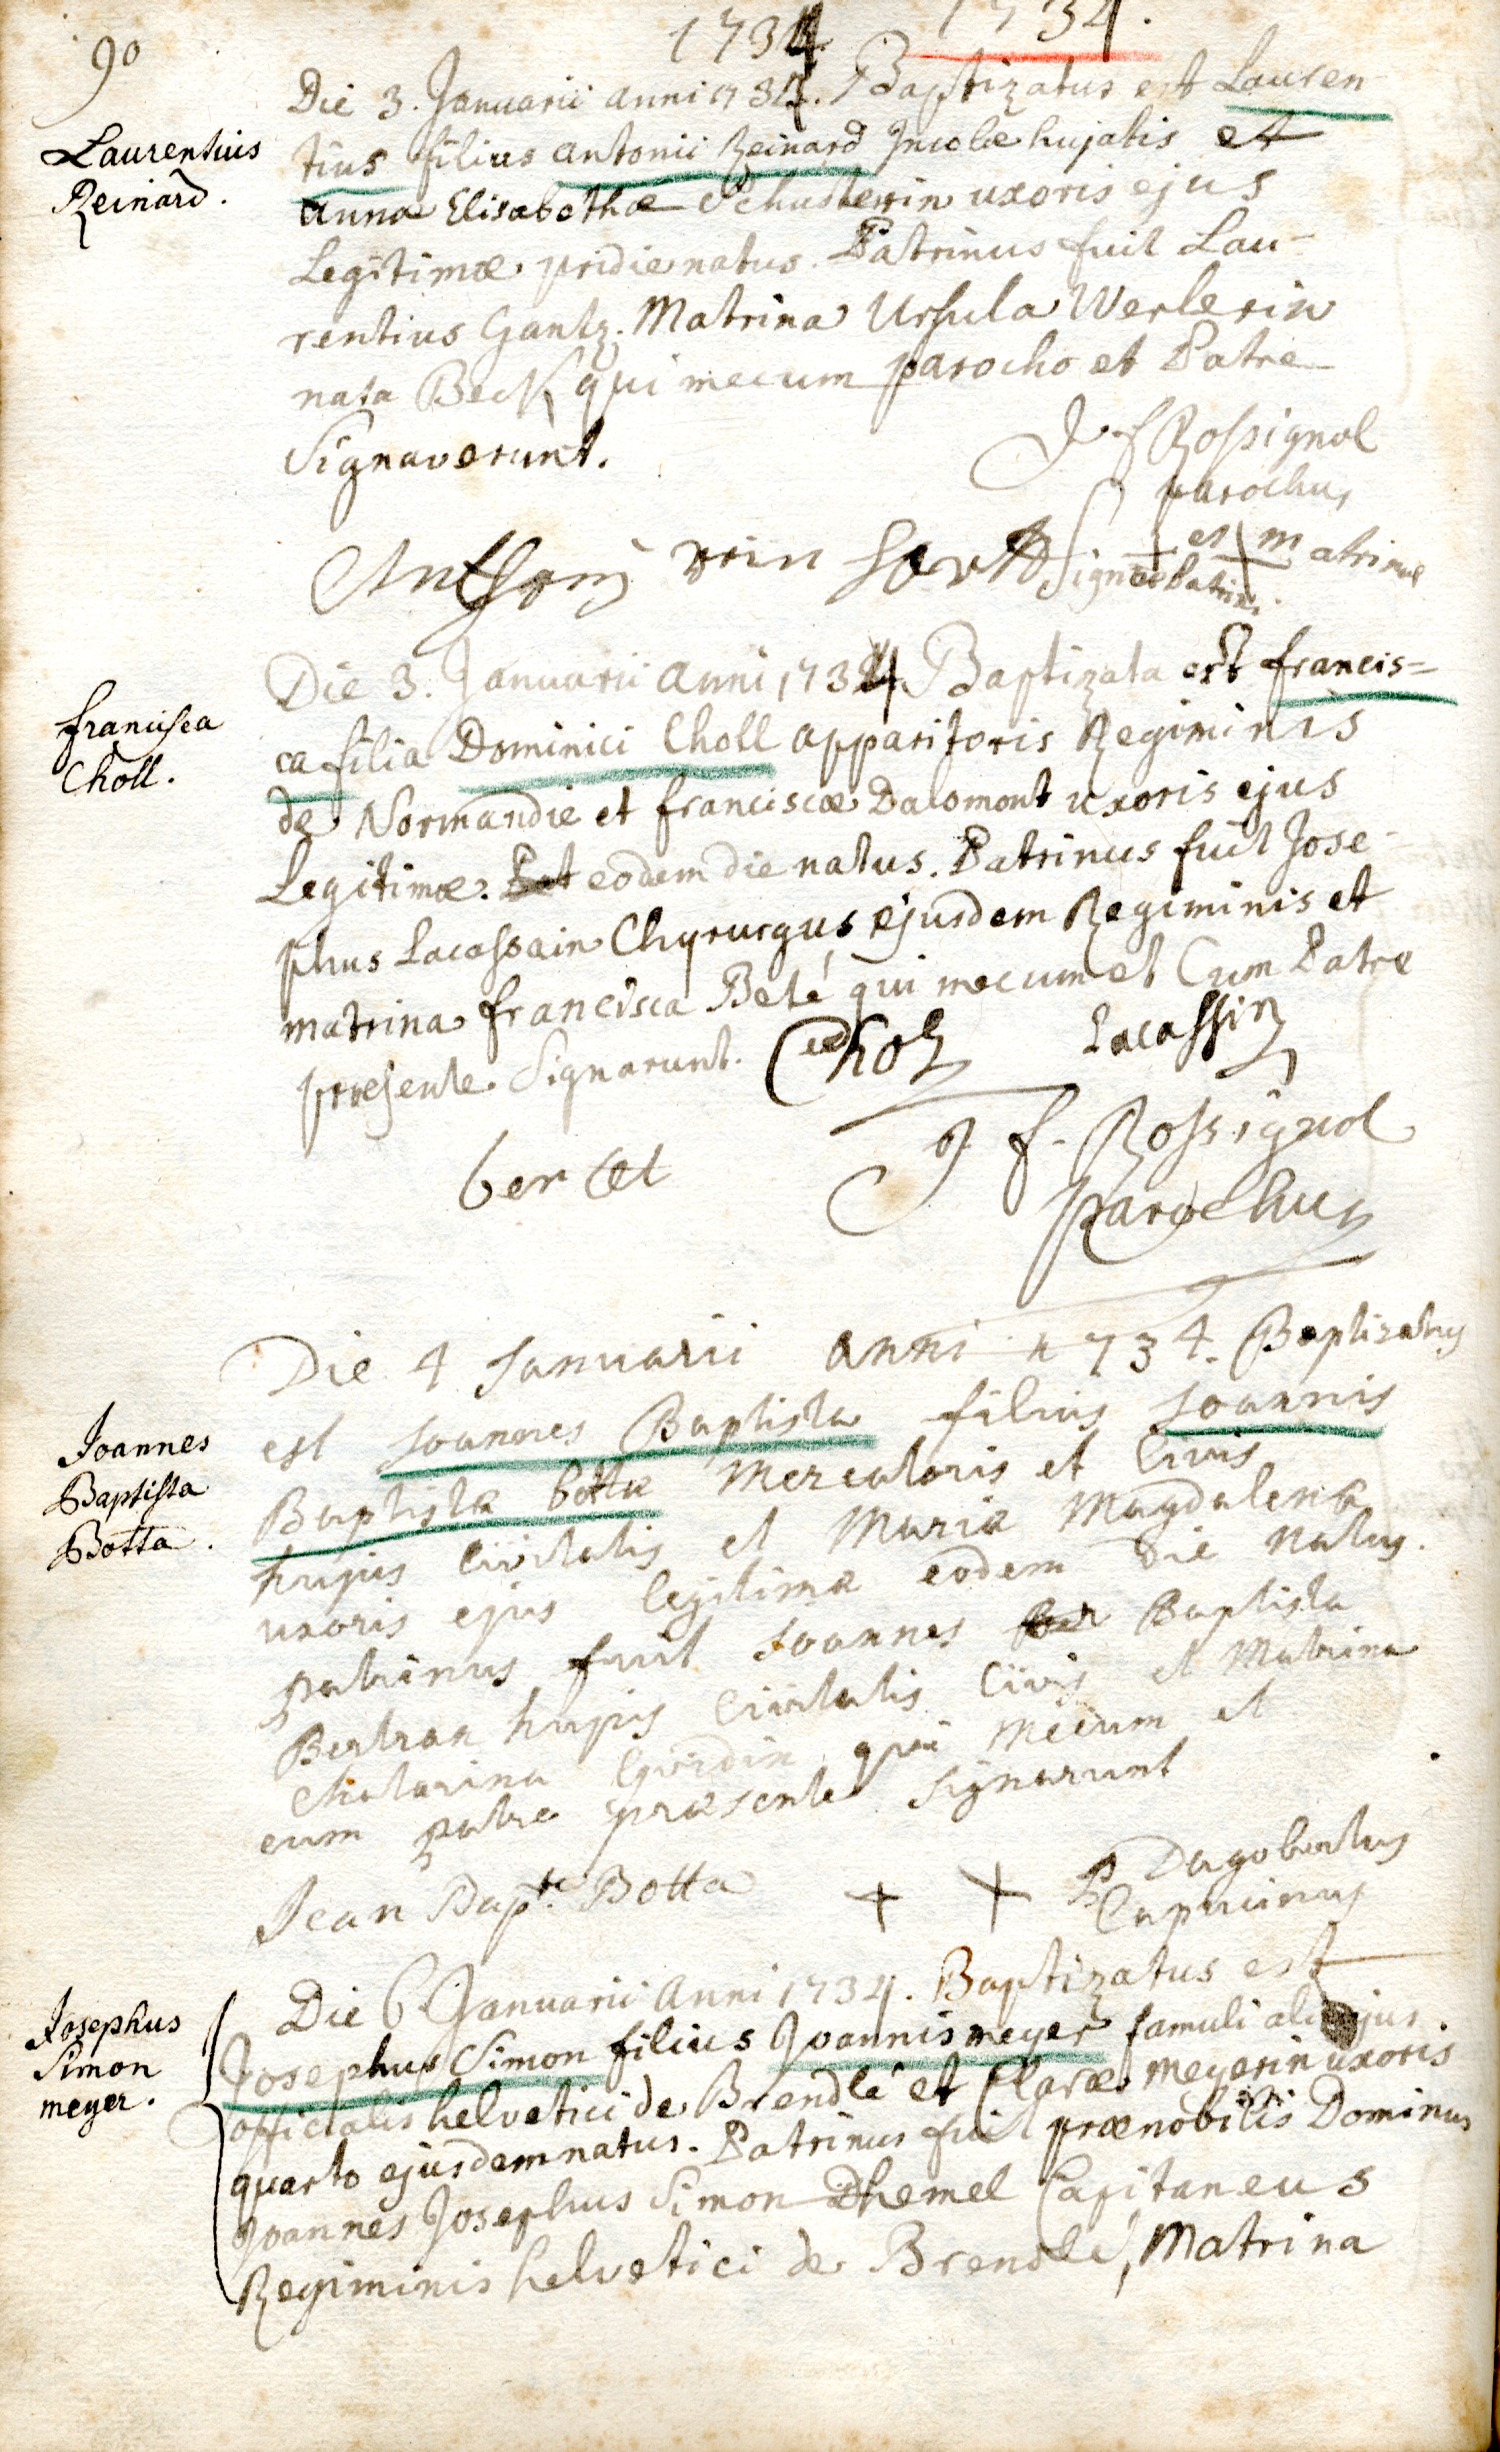 90
1734
1734.
Laurentius
Reinard.
Die 3. Januarii anni 1734. Baptizatus est Lauren-
tius filius antonii Reinard Incolæ hujatis et
Annæ Elisabethæ Schusterin uxoris ejus
Legitimæ pridie natus. Patrinus fuit Lau-
rentius Gantz. Matrina Ursula Werlerin
nata Beck qui mecum parocho et Patre
Signaverunt.
J f Rossignol
parochus
Anthonj rein hart
Signa Patrini
et matrinæ
francisca
Choll.
Die 3. Januarii anni 1734 Baptizata est francis=
ca filia Dominici Choll apparitoris Regiminis
de Normandie et franciscæ Dalomont uxoris ejus
Legitimæ. eodem die natus. Patrinus fuit Jose-
phus Lacassain Chyrurgus ejusdem Regiminis et
matrina francisca Beté qui mecum et Cum Patre
præsente Signarunt.
Chol
Lacassin
J f. Rossignol
parochus
Joannes
Baptista
Botta.
Die 4 Januarii anni 1734. Baptizatus
est Joannes Baptista filius Joannis
Baptistæ bottæ Mercatoris et Civis
hujus Civitatis et Mariæ Magdalenæ
uxoris ejus legitimæ eodem die natus.
patrinus fuit Joannes Baptista
Bertran hujus Civitatis Civis et Matrina
Chatarina qui mecum et
cum patre præsente signarunt
Jean Bapte Botta
+ +
P Dagobertus
Capucinus
Josephus
Simon
meyer.
Die 6 Januarii Anni 1734. Baptizatus est
Josephus Simon filius Joannis meyer famuli alicujus
officialis helvetici de Brendlé et Claræ Meyerin uxoris
quarto ejusdem natus. Patrinus fuit prænobilis Dominus
Joannes Josephus Simon Dhemel Capitaneus
Regiminis helvetici de Brendlé, Matrina